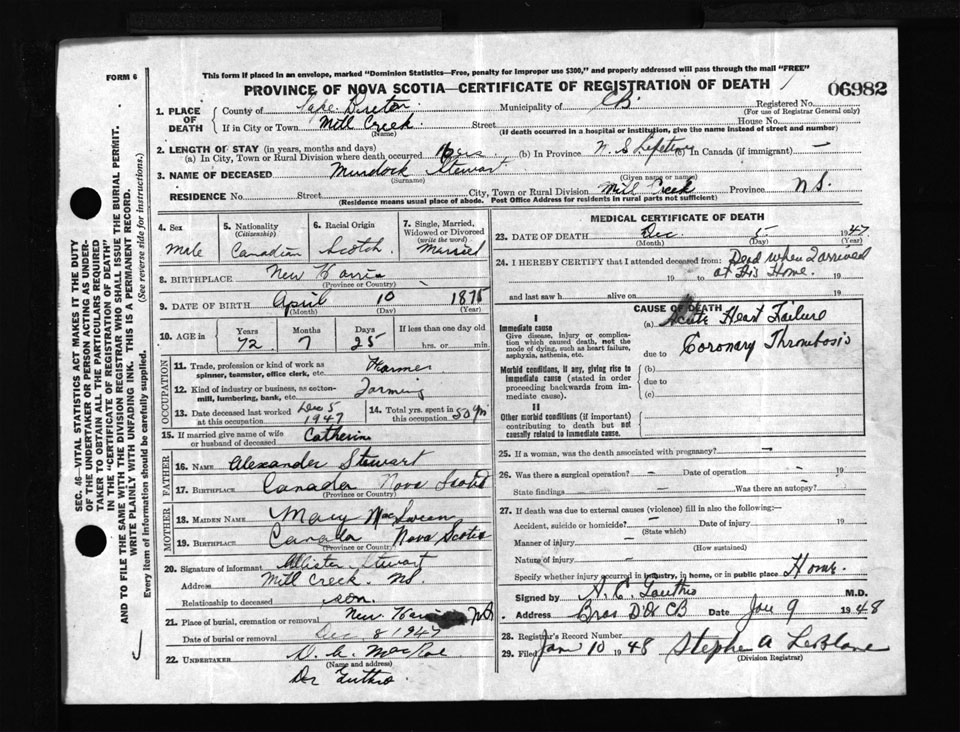 FORM 6
This form if placed in an envelope, marked "Dominion Statistics—Free, penalty for improper use $300," and properly addressed will pass through the mail "FREE"
PROVINCE OF NOVA SCOTIA—CERTIFICATE OF REGISTRATION OF DEATH
06982
1. PLACE OF DEATH
County of Cape Breton Municipality of CB. Registered No.
(For use of Registrar General only)
If in City or Town Mill Creek. Street House No.
(Name) (If death occurred in a hospital or institution, give the name instead of street and number)
2. LENGTH OF STAY (in years, months and days)
(a) In City, Town or Rural Division where death occurred (b) In Province N. S. Lifetime (c) In Canada (if immigrant) —
3. NAME OF DECEASED Murdock Stewart
(Surname) (Given name or names)
RESIDENCE No. Street City, Town or Rural Division Mill Creek Province N S.
(Residence means usual place of abode. Post Office Address for residents in rural parts not sufficient)
4. Sex
Male
5. Nationality
(Citizenship)
Canadian
6. Racial Origin
Scotch
7. Single, Married, Widowed or Divorced
(write the word)
Married
8. BIRTHPLACE New Harris
(Province or Country)
9. DATE OF BIRTH April 10 1875
(Month) (Day) (Year)
10. AGE in
Years Months Days If less than one day old
72 7 25 hrs. or min.
OCCUPATION
11. Trade, profession or kind of work as spinner, teamster, office clerk, etc. Farmer
12. Kind of industry or business, as cotton-mill, lumbering, bank, etc. Farming
13. Date deceased last worked at this occupation Dec 5 1947
14. Total yrs. spent in this occupation 50 yrs
15. If married give name of wife or husband of deceased Catherine
FATHER
16. NAME Alexander Stewart
17. BIRTHPLACE Canada Nova Scotia
(Province or Country)
MOTHER
18. MAIDEN NAME Mary
19. BIRTHPLACE Canada Nova Scotia
(Province or Country)
20. Signature of informant Stewart
Address Mill Creek. NS.
Relationship to deceased son.
21. Place of burial, cremation or removal New NS
Date of burial or removal Dec 8 1947
22. UNDERTAKER
(Name and address)
MEDICAL CERTIFICATE OF DEATH
23. DATE OF DEATH Dec. 5 1947
(Month) (Day) (Year)
24. I HEREBY CERTIFY that I attended deceased from: Dead when I arrived
19 to at his Home. 19
and last saw h alive on 19
CAUSE OF DEATH
I
Immediate cause
Give disease, injury or complication which caused death, not the mode of dying, such as heart failure, asphyxia, asthenia, etc.
(a) Acute Heart Failure
due to Coronary Thrombosis
Morbid conditions, if any, giving rise to immediate cause (stated in order proceeding backwards from immediate cause).
(b)
due to
(c)
II
Other morbid conditions (if important) contributing to death but not causally related to immediate cause.
25. If a woman, was the death associated with pregnancy? —
26. Was there a surgical operation? — Date of operation — 19
State findings Was there an autopsy? -
27. If death was due to external causes (violence) fill in also the following:—
Accident, suicide or homicide? — Date of injury 19
(State which)
Manner of injury —
(How sustained)
Nature of injury —
Specify whether injury occurred in industry, in home, or in public place Home.
Signed by M.D.
Address Bras D'Or CB Date Jan 9 1948
28. Registrar's Record Number
29. Filed Jan 10 1948 Stephen A LeBlanc
(Division Registrar)
SEC. 46—VITAL STATISTICS ACT MAKES IT THE DUTY
OF THE UNDERTAKER OR PERSON ACTING AS UNDER-
TAKER TO OBTAIN ALL THE PARTICULARS REQUIRED
IN THE "CERTIFICATE OF REGISTRATION OF DEATH"
AND TO FILE THE SAME WITH THE DIVISION REGISTRAR WHO SHALL ISSUE THE BURIAL PERMIT.
WRITE PLAINLY WITH UNFADING INK. THIS IS A PERMANENT RECORD.
Every item of information should be carefully supplied. (See reverse side for instructions.)